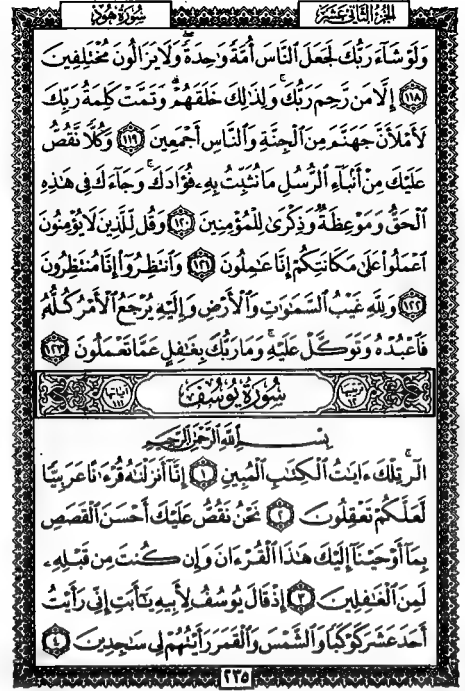 الجزء الثاني عشر
سورة هود
وَلَوْ شَآءَ رَبُّكَ لَجَعَلَ ٱلنَّاسَ أُمَّةً وَٰحِدَةً ۖ وَلَا يَزَالُونَ مُخْتَلِفِينَ
﴿١١٨﴾ إِلَّا مَن رَّحِمَ رَبُّكَ ۚ وَلِذَٰلِكَ خَلَقَهُمْ ۗ وَتَمَّتْ كَلِمَةُ رَبِّكَ
لَأَمْلَأَنَّ جَهَنَّمَ مِنَ ٱلْجِنَّةِ وَٱلنَّاسِ أَجْمَعِينَ ﴿١١٩﴾ وَكُلًّا نَّقُصُّ
عَلَيْكَ مِنْ أَنۢبَآءِ ٱلرُّسُلِ مَا نُثَبِّتُ بِهِۦ فُؤَادَكَ ۚ وَجَآءَكَ فِى هَٰذِهِ
ٱلْحَقُّ وَمَوْعِظَةٌ وَذِكْرَىٰ لِلْمُؤْمِنِينَ ﴿١٢٠﴾ وَقُل لِّلَّذِينَ لَا يُؤْمِنُونَ
ٱعْمَلُوا۟ عَلَىٰ مَكَانَتِكُمْ إِنَّا عَٰمِلُونَ ﴿١٢١﴾ وَٱنتَظِرُوٓا۟ إِنَّا مُنتَظِرُونَ
﴿١٢٢﴾ وَلِلَّهِ غَيْبُ ٱلسَّمَٰوَٰتِ وَٱلْأَرْضِ وَإِلَيْهِ يُرْجَعُ ٱلْأَمْرُ كُلُّهُۥ
فَٱعْبُدْهُ وَتَوَكَّلْ عَلَيْهِ ۚ وَمَا رَبُّكَ بِغَٰفِلٍ عَمَّا تَعْمَلُونَ ﴿١٢٣﴾
ترتيبها ١٢ سورة يوسف آياتها ١١١
بِسْمِ ٱللَّهِ ٱلرَّحْمَٰنِ ٱلرَّحِيمِ
الٓر ۚ تِلْكَ ءَايَٰتُ ٱلْكِتَٰبِ ٱلْمُبِينِ ﴿١﴾ إِنَّآ أَنزَلْنَٰهُ قُرْءَٰنًا عَرَبِيًّا
لَّعَلَّكُمْ تَعْقِلُونَ ﴿٢﴾ نَحْنُ نَقُصُّ عَلَيْكَ أَحْسَنَ ٱلْقَصَصِ
بِمَآ أَوْحَيْنَآ إِلَيْكَ هَٰذَا ٱلْقُرْءَانَ وَإِن كُنتَ مِن قَبْلِهِۦ
لَمِنَ ٱلْغَٰفِلِينَ ﴿٣﴾ إِذْ قَالَ يُوسُفُ لِأَبِيهِ يَٰٓأَبَتِ إِنِّى رَأَيْتُ
أَحَدَ عَشَرَ كَوْكَبًا وَٱلشَّمْسَ وَٱلْقَمَرَ رَأَيْتُهُمْ لِى سَٰجِدِينَ ﴿٤﴾
٢٣٥